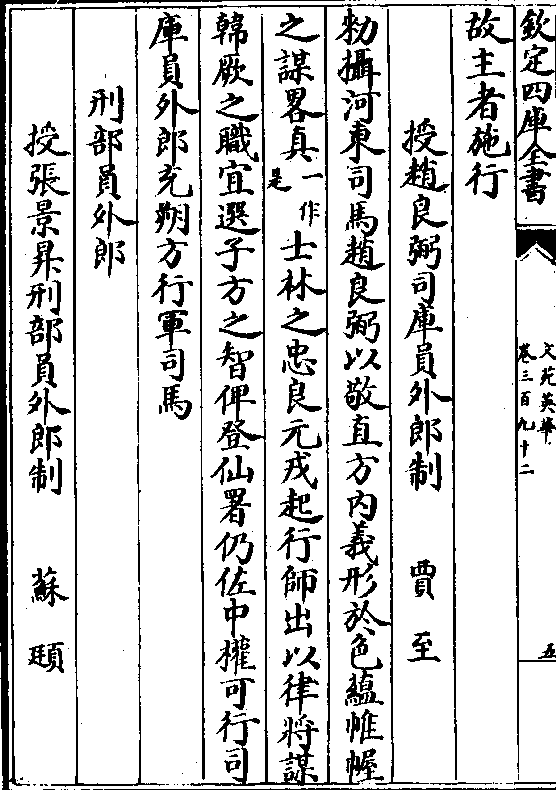 欽定四庫全書
文苑英華
卷三百九十二
五
故主者施行
授趙良弼司庫員外郎制 賈至
勑攝河東司馬趙良弼以敬直方内義形於色藴帷幄
之謀畧真一作是士林之忠良元戎起行師出以律將謀
韓厥之職宜選子方之智俾登仙署仍佐中權可行司
庫員外郎充朔方行軍司馬
刑部員外郎
授張景昇刑部員外郎制 蘇頲